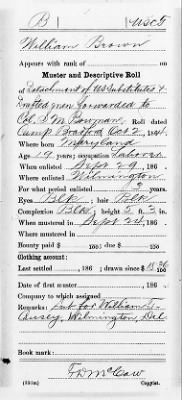 B | USCT
William Brown
Appears with rank of
Muster and Descriptive Roll
of Detachment of US Substitutes &
Drafted men forwarded to
Col. S M Bowman, Roll dated
Camp Bradford Oct 2, 1864.
Where born Maryland
Age 19 years; occupation Laborer
When enlisted Sept 29, 186 .
Where enlisted Wilmington
For what period enlisted 2 years.
Eyes Blk ; hair Blk
Complexion Blk ; height 5 ft. 3 in.
When mustered in Sept 29, 186 .
Where mustered in
Bounty paid $ 100; due $ 100
Clothing account:
Last settled , 186 ; drawn since $ 100
Date of first muster , 186
Company to which assigned
Remarks: Sub for William
Causey, Wilmington, Del
Book mark:
McCaw
(339m) Copyist.